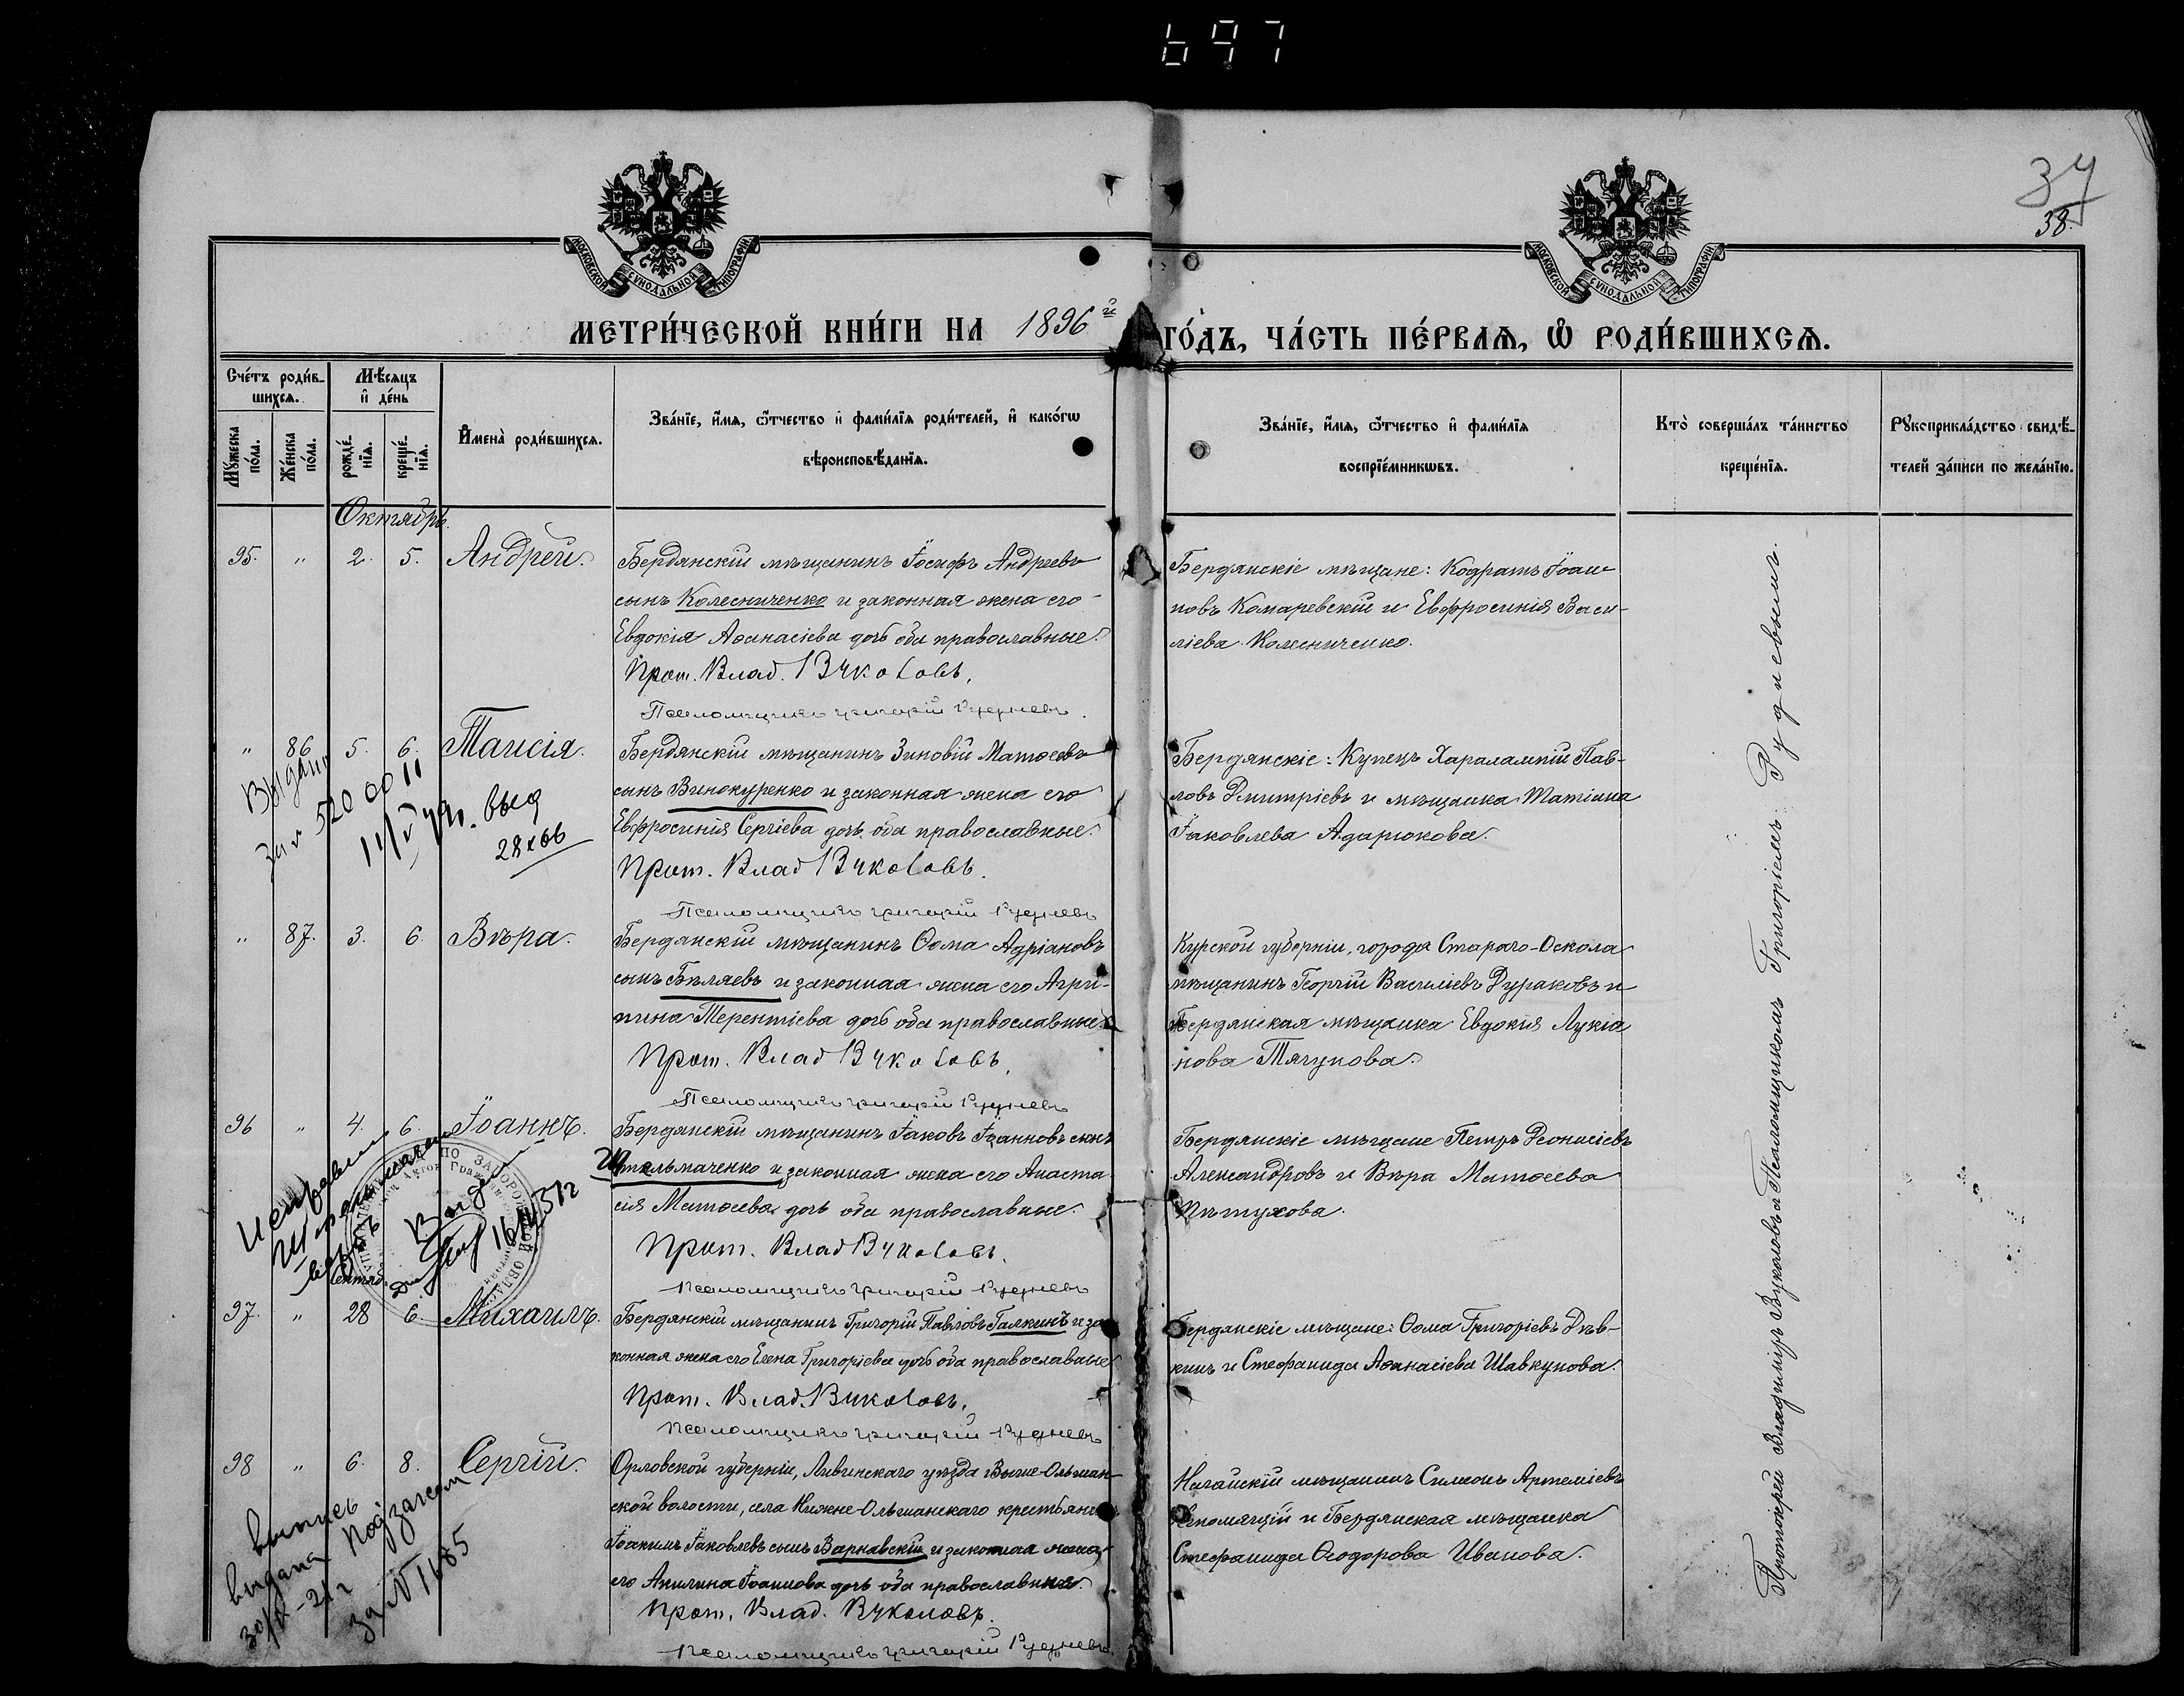 697
37
38.
МОСКОВСКОЙ СѴНОДАЛЬНОЙ ТИПОГРАФІИ
МОСКОВСКОЙ СѴНОДАЛЬНОЙ ТИПОГРАФІИ
МЕТРИ́ЧЕСКОЙ КНИ́ГИ НА 1896й ГО́ДЪ, ЧА́СТЬ ПЕ́РВАѦ, Ѽ РОДИ́ВШИХСѦ.
Сче́тъ роди́в-
шихсѧ.
Мѣ́сѧцъ
и҆ де́нь
Мꙋ́жеска
по́ла.
Же́нска
по́ла.
рожде́-
нїѧ.
креще́-
нїѧ.
И҆мена̀ роди́вшихсѧ.
Зва́нїе, и҆́мѧ, ѻ҆́тчество и҆ фами́лїѧ роди́телей, и҆ како́гѡ
вѣроисповѣ́данїѧ.
Зва́нїе, и҆́мѧ, ѻ҆́тчество и҆ фами́лїѧ
воспрїе́мникѡвъ.
Кто̀ соверша́лъ та́инство
креще́нїѧ.
Рꙋкоприкла́дство свидѣ́-
телей за́писи по жела́нїю.
Октябрь.
95. " 2. 5. Андрей.
Бердянскій мѣщанинъ Іосифъ Андреевъ
сынъ Колесниченко и законная жена его
Евдокія Аѳанасіева дочь оба православные.
Прот. Влад. Вуколовъ.
Псаломщикъ Григорій Рудневъ.
Бердянскіе мѣщане: Кодратъ Іоан-
новъ Комаревскій и Евфросинія Васи-
ліева Колесниченко.
" 86 5. 6. Таисія.
Выдана
за № 520 00 11
11/V 49г. выд
28 хов
Бердянскій мѣщанинъ Зиновій Матѳеевъ
сынъ Винокуренко и законная жена его
Евфросинія Сергіева дочь, оба православные.
Прот. Влад Вуколовъ.
Псаломщикъ Григорій Рудневъ
Бердянскіе: Купецъ Харалампій Пав-
ловъ Дмитріевъ и мѣщанка Татіана
Іаковлева Адарюкова.
" 87. 3. 6. Вѣра.
Бердянскій мѣщанинъ Ѳома Адріановъ
сынъ Бѣляевъ и законная жена его Агри-
пина Терентіева дочь оба православные.
Прот. Влад Вуколовъ.
Псаломщикъ Григорій Рудневъ
Курской губерніи, города Стараго-Оскола
мѣщанинъ Георгій Василіевъ Дураковъ и
Бердянская мѣщанка Евдокія Лукіа
нова Тягунова.
96 " 4. 6. Іоаннъ.
Бердянскій мѣщанинъ Іаковъ Іоанновъ сынъ
Штельмаченко и законная жена его Анаста-
сія Матѳеева дочь оба православные.
Прот. Влад Вуколовъ.
Псаломщикъ Григорій Рудневъ
Бердянскіе мѣщане Петръ Діонисіевъ
Александровъ и Вѣра Матѳеева
Пѣтухова.
Сентяб.
97. " 28 6. Михаилъ.
Бердянскій мѣщанинъ Григорій Павловъ Галкинъ и за
конная жена его Елена Григоріева дочь оба православные
Прот. Влад. Вуколовъ.
Псаломщикъ Григорій Рудневъ
Бердянскіе мѣщане: Ѳома Григоріевъ Дѣв-
кинъ и Стефанида Аѳанасіева Шавкунова.
98 " 6. 8. Сергій.
выпись
выдана Под загсом
за № 1685
Орловской губерніи, Ливенскаго уѣзда Выше-Ольшан-
ской волости, села Нижне-Ольшанскаго крестьянинъ
Іоакимъ Іаковлевъ сынъ Варнавскій и законная жена
его Акилина Іоаннова дочь оба православные.
Прот. Влад. Вуколовъ.
Псаломщикъ Григорій Рудневъ.
Ногайскій мѣщанинъ Симеонъ Артеміевъ
и Бердянская мѣщанка
Стефанида Ѳеодорова Иванова.
Протоіерей Владиміръ Вуколовъ съ Псаломщикомъ Григоріемъ Рудневымъ.